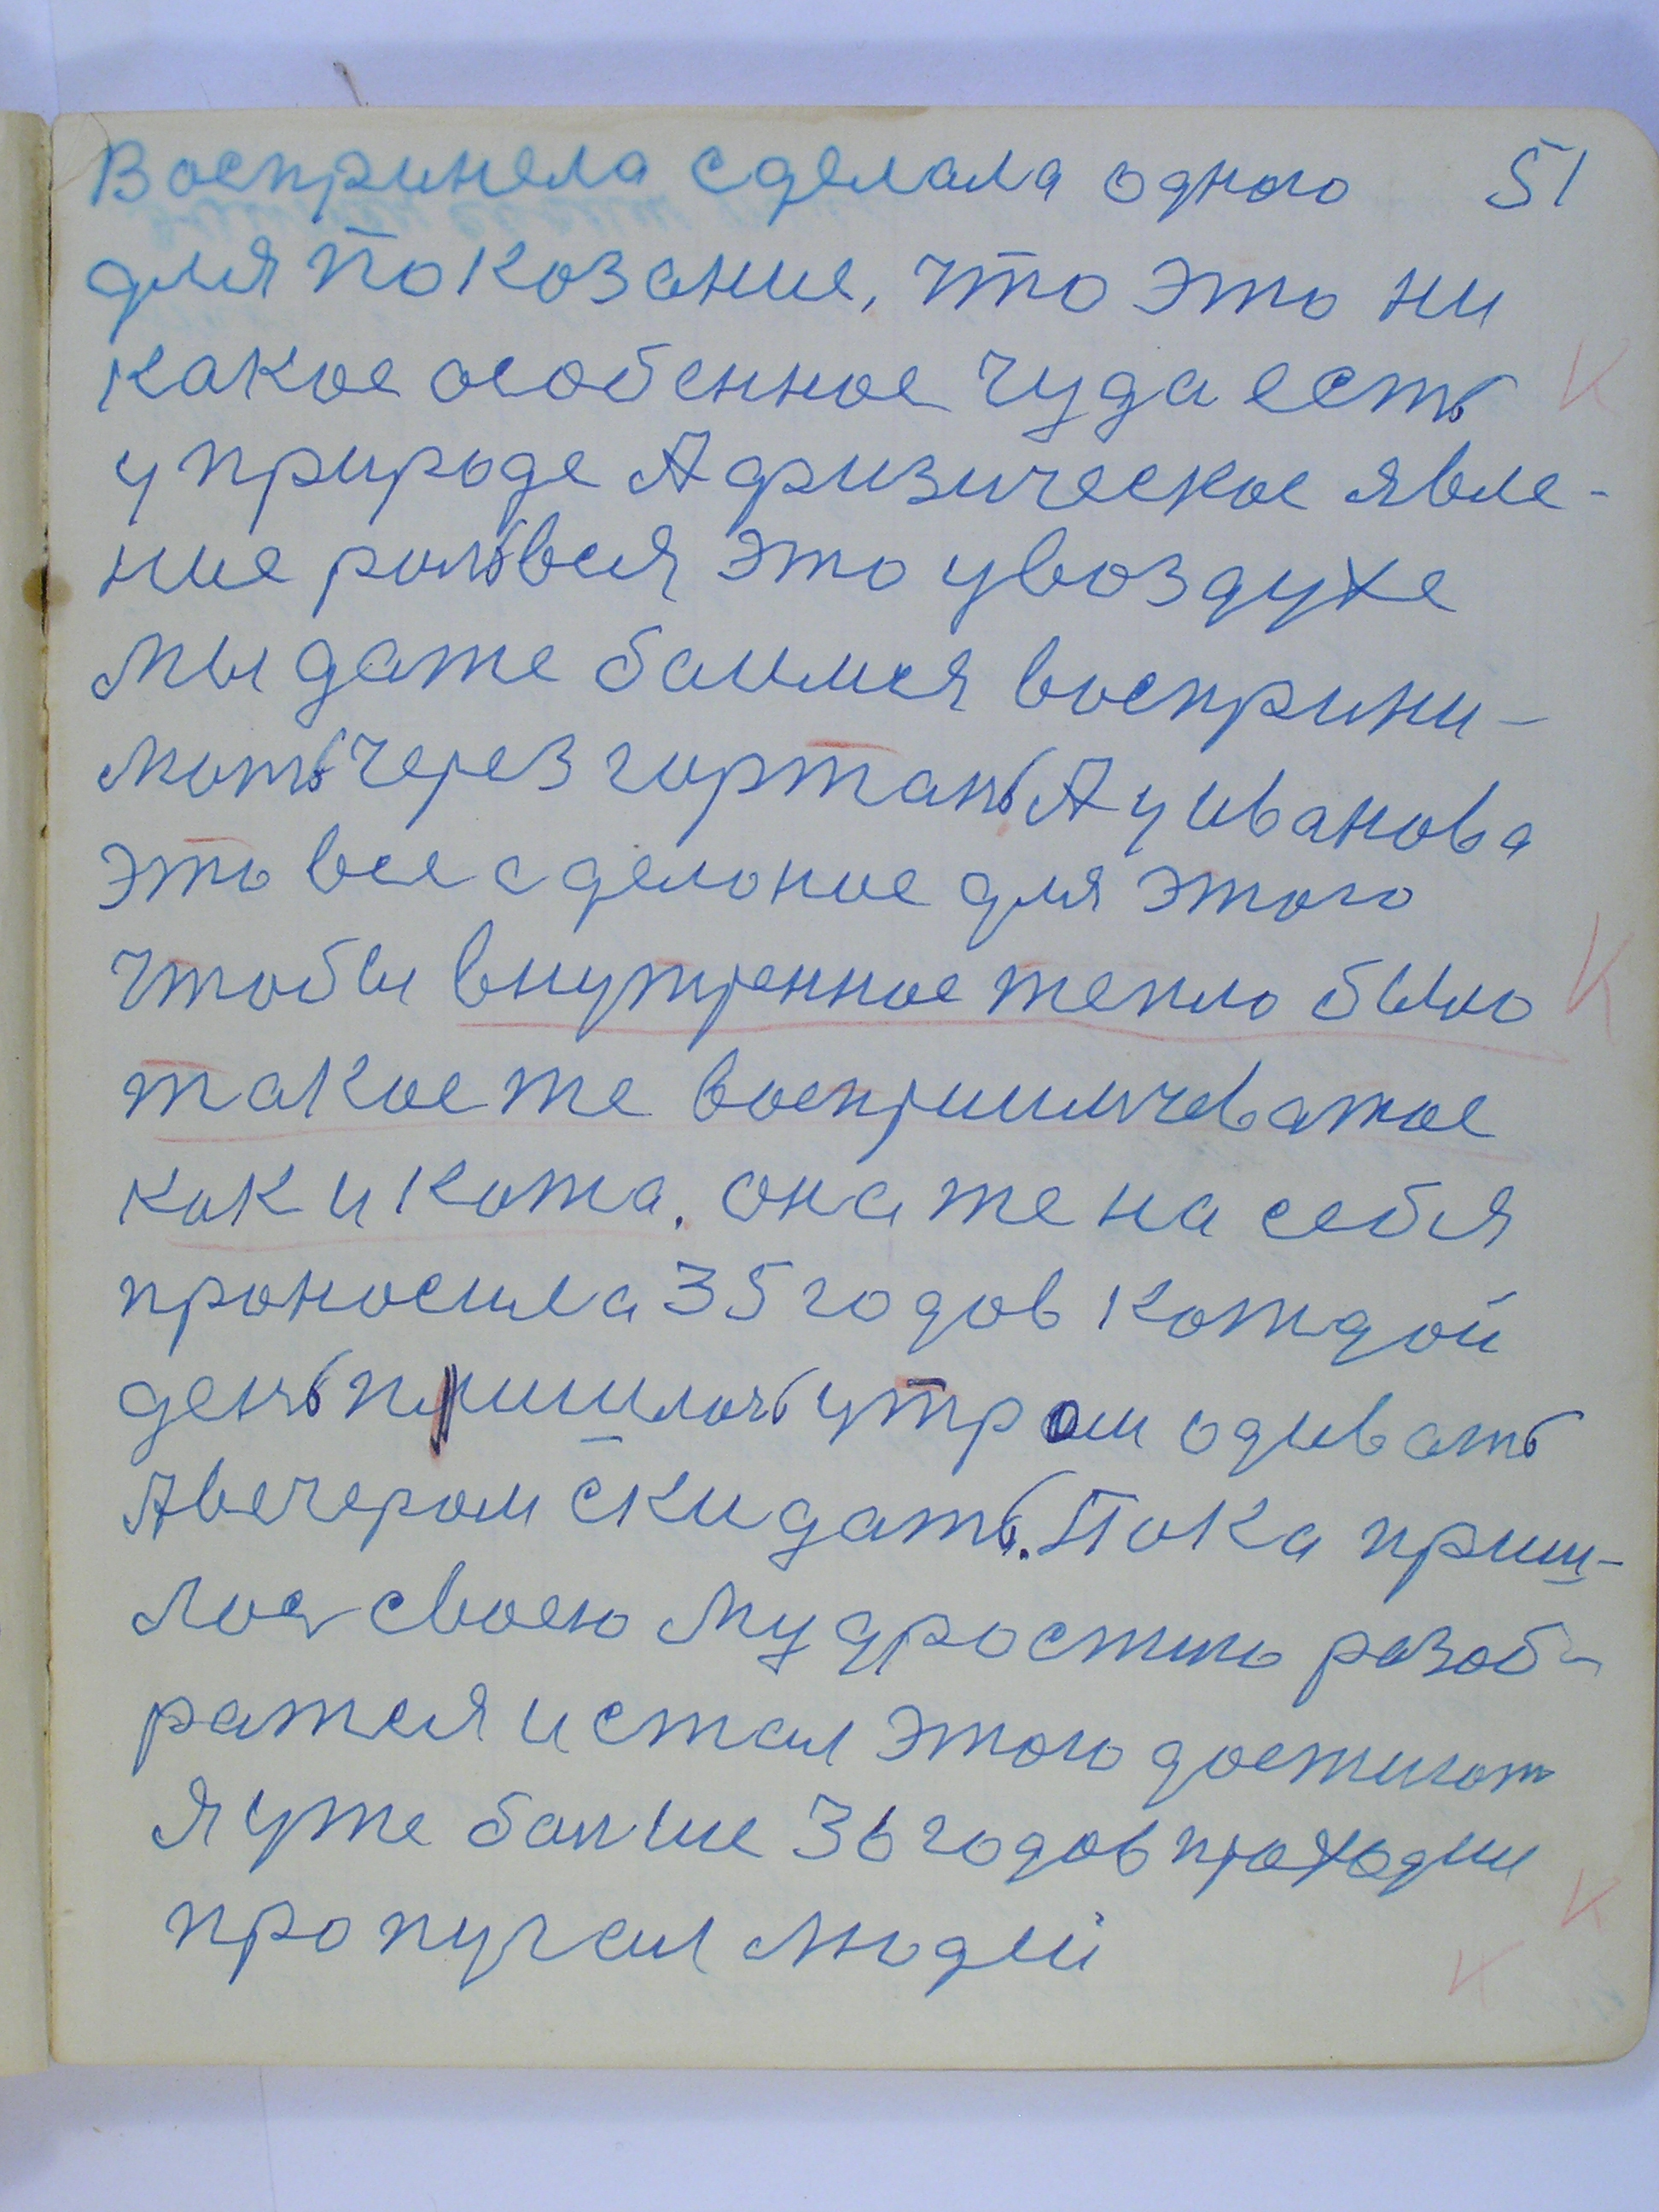 Воспринела сделала одного 51
для показание, что это ни
какое особенное чуда есть
у природе А физическое явле-
ние рольвся это увоздухе
мы даже баимся восприни-
мать через гортань А у иванова
это все сделоние для этого
чтобы внутренное тепло было
такое же восприимчеватое
как и кожа. она же на себя
проносила 35 годов каждой
день пришлось утром одивать
А вечером скидать. Пока приш-
лося своею мудростию разоб-
ратся и стал этого достигат
я уже балше 36 годов проходил
пропучал людей